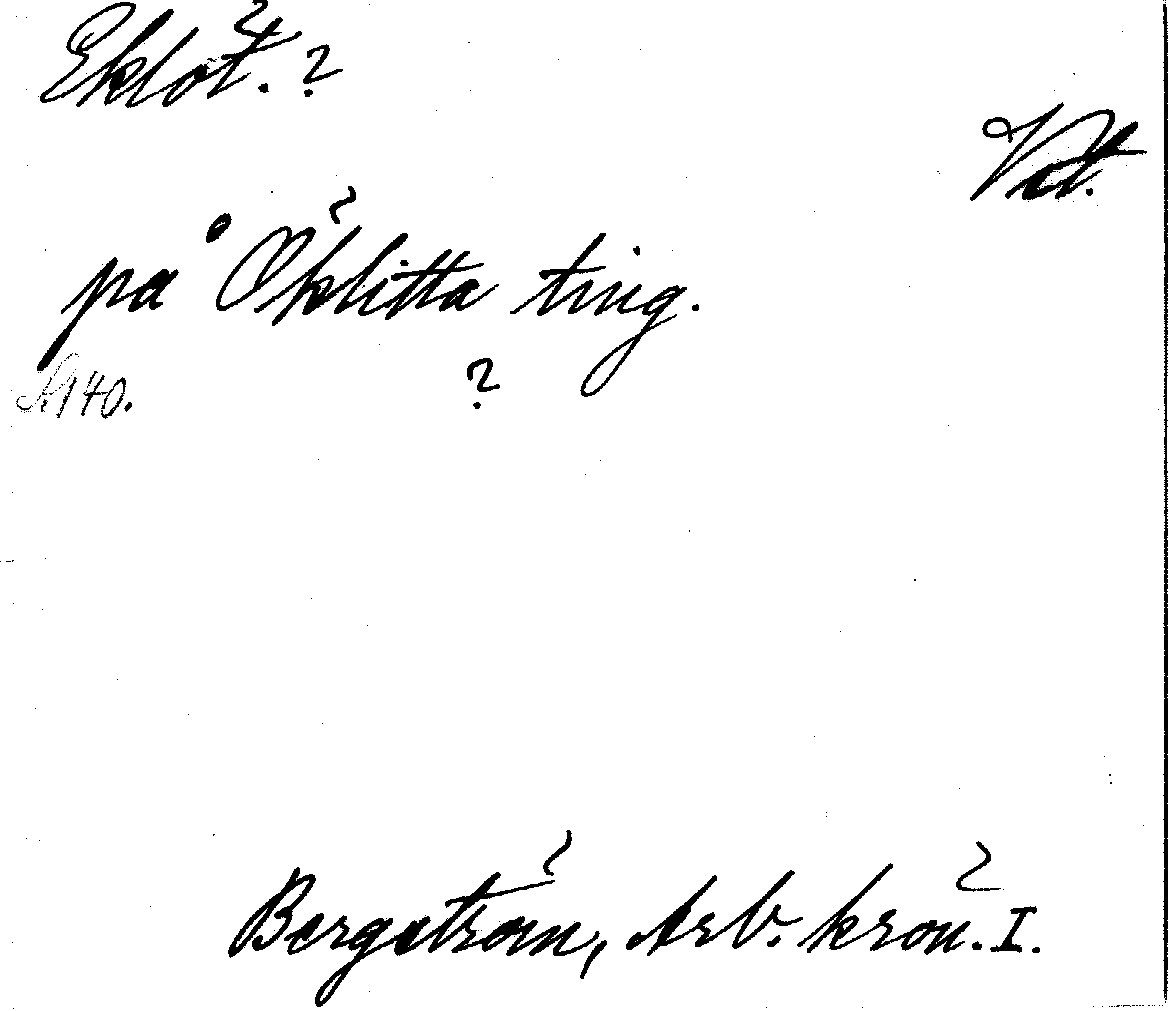 Eklöt. ?
Vat.
på Öklitta ting.
A 140. ?
Bergström, Arb. krön. I.